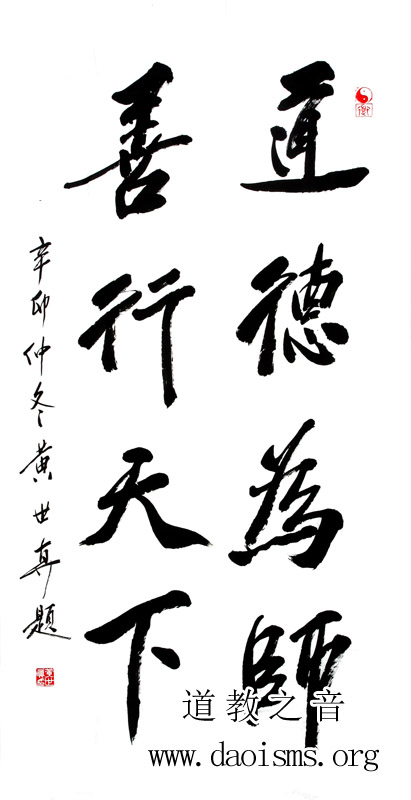 道德為師
善行天下
辛卯仲冬黃世真題
道教之音
www.daoisms.org